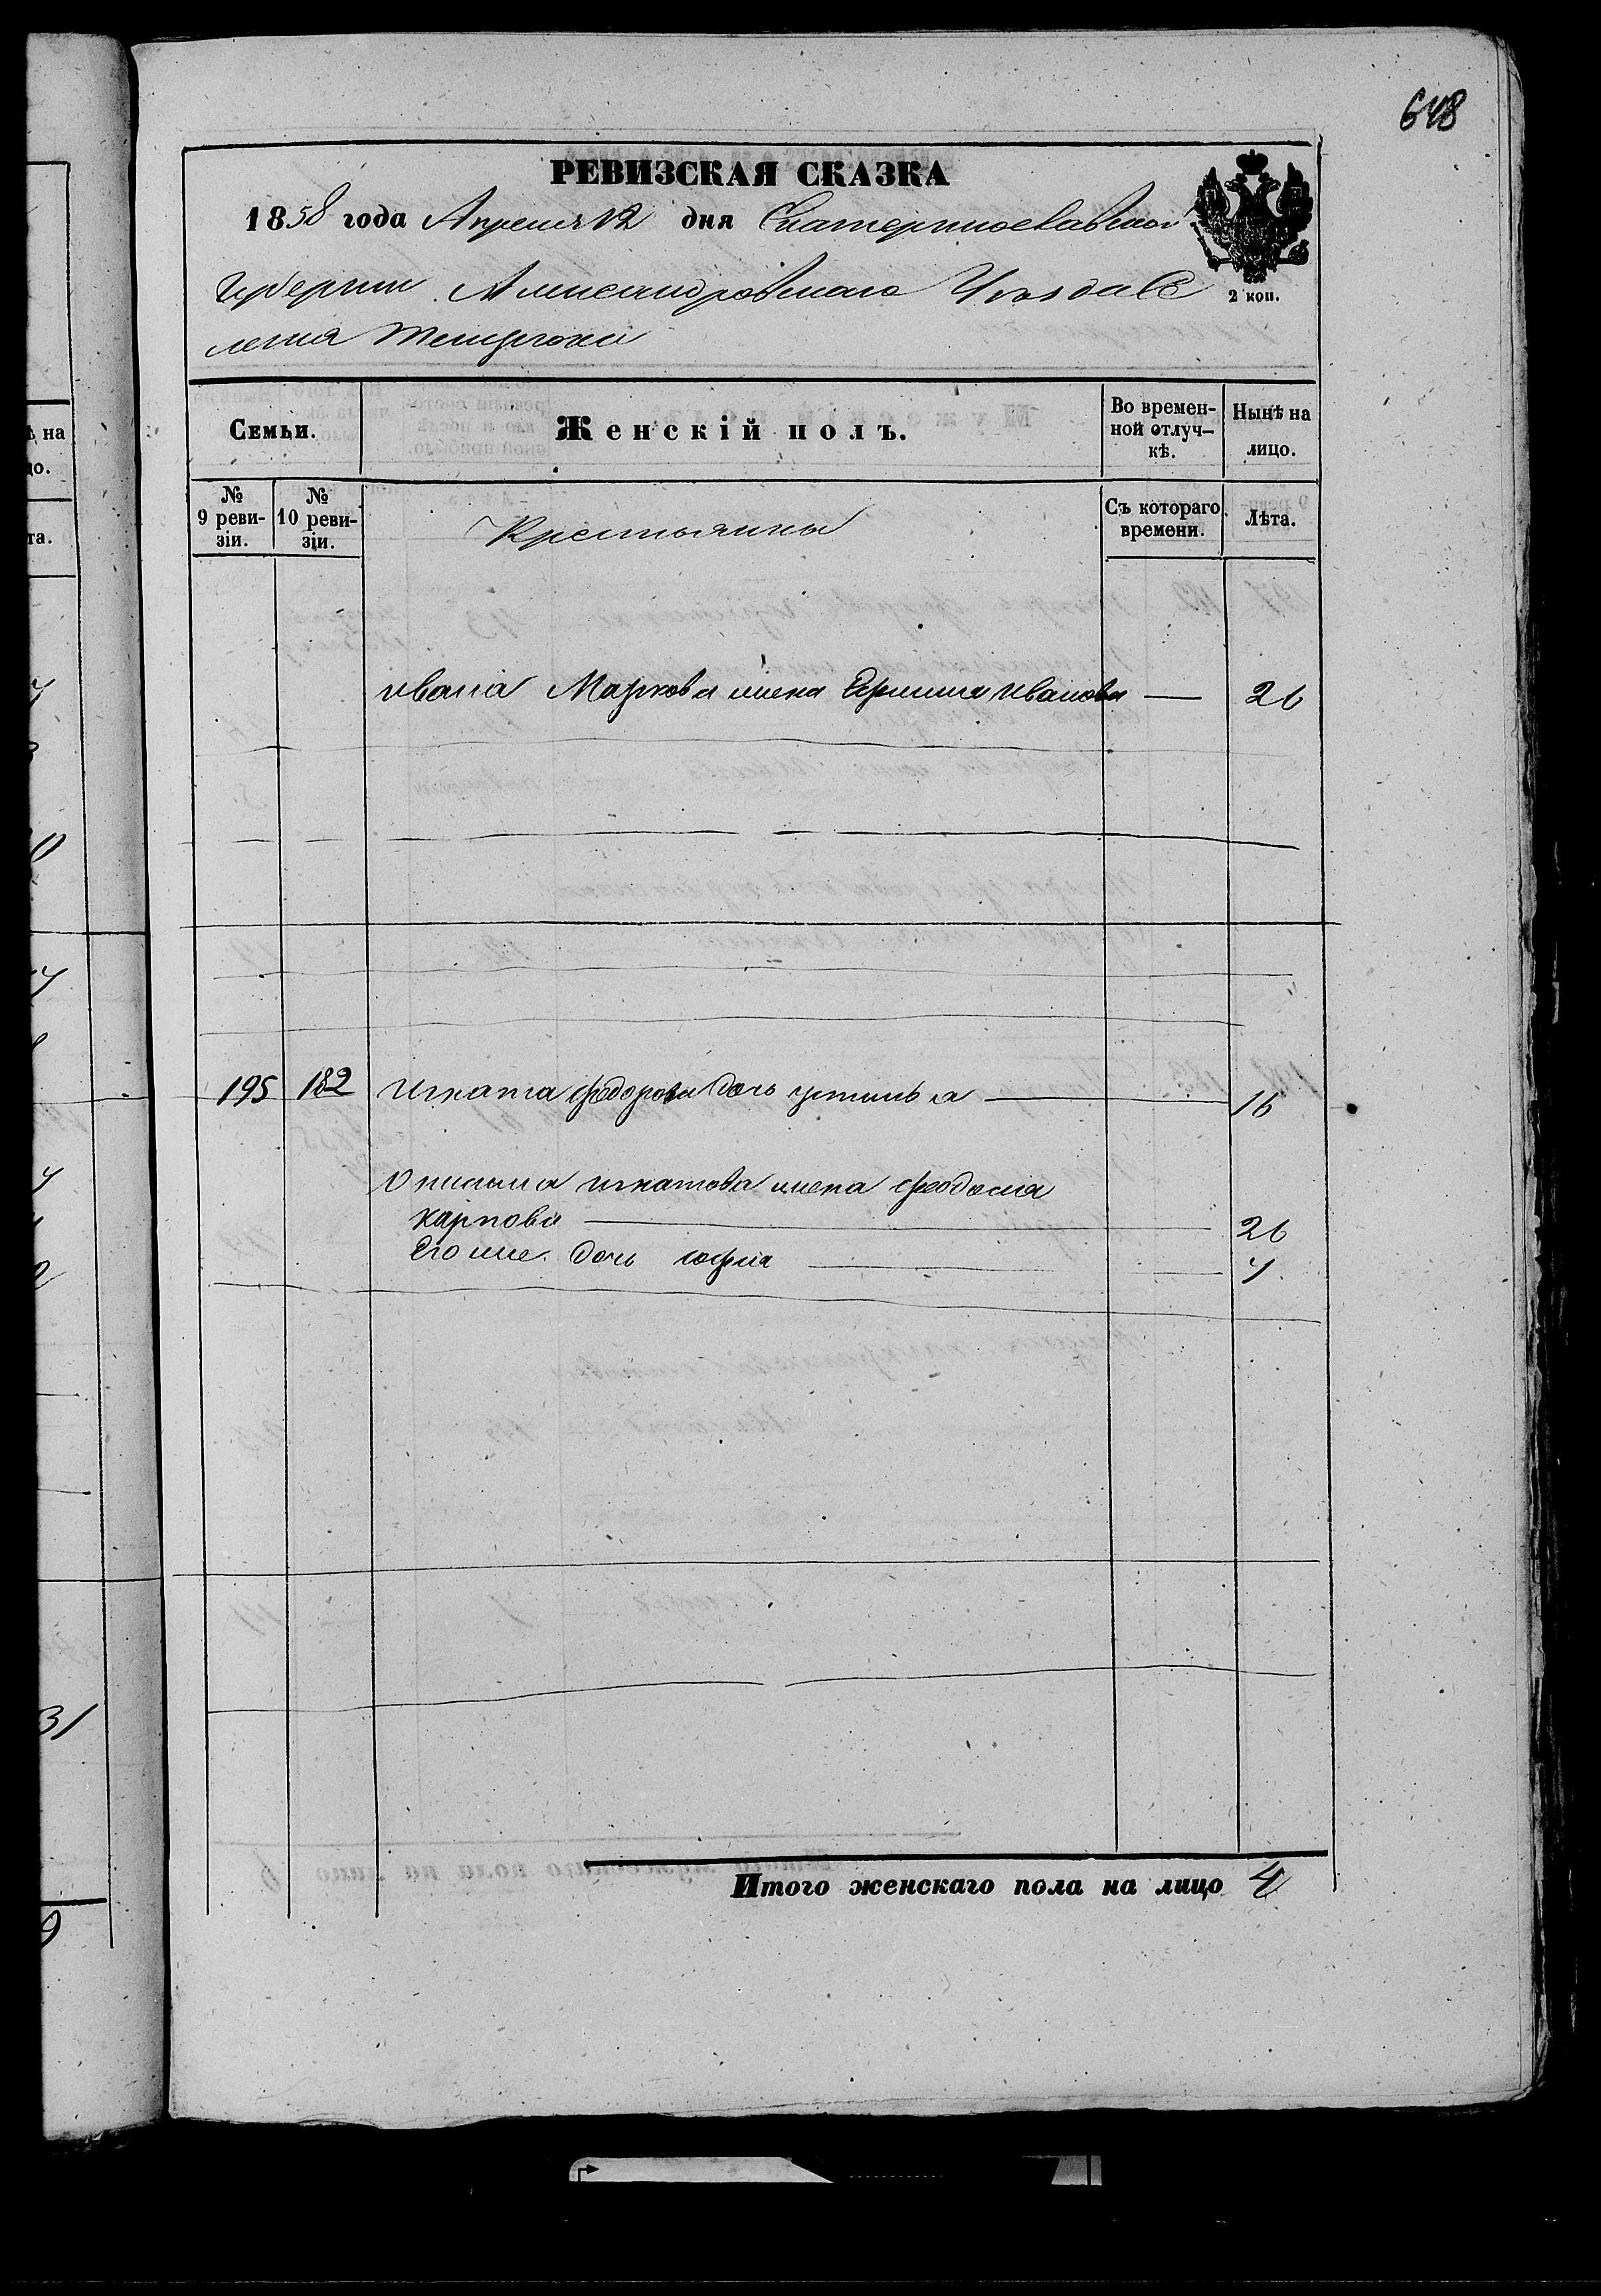 648
РЕВИЗСКАЯ СКАЗКА
1858 года Апреля 12 дня Екатеринославской
Губернии Александровского Уезда Се
ления
2 коп.
Семьи.
Женскій полъ.
Во времен-
ной отлуч-
кѣ.
Нынѣ на
лицо.
№
9 реви-
зіи.
№
10 реви-
зіи.
Крестьянны
Съ котораго
времени.
Лѣта.
ивана Маркова жена Ефимия иванова — 26
195 182 игната федорова дочь устинья — 16
Онисима игнатова жена феодосия
карпова — 26
Его же дочь софия — 4
Итого женскаго пола на лицо 4
ѣ на
цо.
та.
31